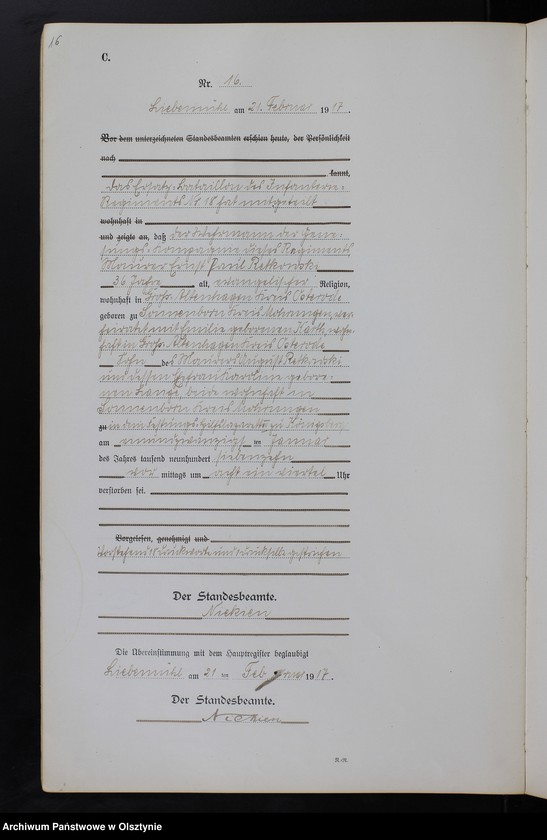 16
C.
Nr. 16.
Liebemühl am 21. Februar 1917.
Vor dem unterzeichneten Standesbeamten erschien heute, der Persönlichkeit
nach
kannt,
Das Ersatz-Bataillon des Infanterie-
Regiments Nr. 18 hat mitgeteilt
wohnhaft in
und zeigte an, daß der Wehrmann der Gene-
sungs-Kompagnie dieses Regiments
Maurer Ernst Paul Retkowski
36 Jahre alt, evangelischer Religion,
wohnhaft in Groß Altenhagen Kreis Osterode
geboren zu Sonnenborn Kreis Mohrungen, ver-
heiratet mit Emilie geborenen wohn-
haft in Groß Altenhagen Kreis Osterode
Sohn des Maurers August Retkowski
und dessen Ehefrau Karoline gebore-
nen beide wohnhaft in
Sonnenborn Kreis Mohrungen
zu in dem Festungs-Hilfslazarett zu Königsberg
am neunundzwanzigsten Januar
des Jahres tausend neunhundert siebenzehn
vor mittags um acht ein viertel Uhr
verstorben sei.
Vorgelesen, genehmigt und
Vorstehend Druckworte und Druckstelle gestrichen
Der Standesbeamte.
Nickien
Die Übereinstimmung mit dem Hauptregister beglaubigt
Liebemühl am 21 ten Februar 1917.
Der Standesbeamte.
Nickien
Archiwum Państwowe w Olsztynie